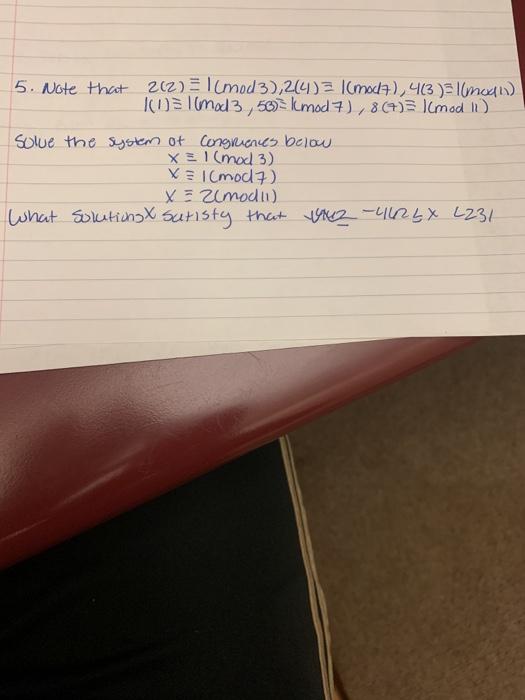 5. Note that 2(2) ≡ 1(mod 3), 2(4) ≡ 1(mod 7), 4(3) ≡ 1(mod 11)
1(1) ≡ 1(mod 3, 5(3) ≡ 1(mod 7), 8(7) ≡ 1(mod 11)
Solve the system of congruences below
x ≡ 1(mod 3)
x ≡ 1(mod 7)
x ≡ 2(mod 11)
What solutions x satisfy that -462 ≤ x < 231